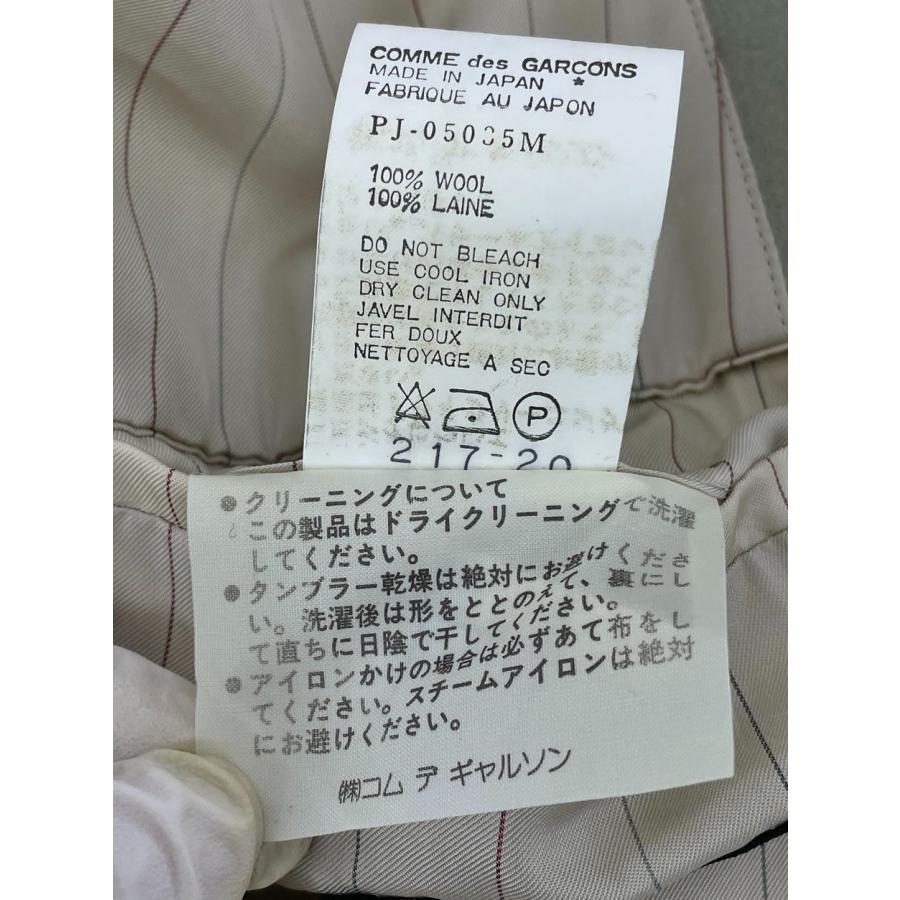 COMME des GARCONS
MADE IN JAPAN *
FABRIQUE AU JAPON
PJ-05035M
100% WOOL
100% LAINE
DO NOT BLEACH
USE COOL IRON
DRY CLEAN ONLY
JAVEL INTERDIT
FER DOUX
NETTOYAGE A SEC
P
217-20
●クリーニングについて
この製品はドライクリーニングで洗濯
してください。
●タンブラー乾燥は絶対にお避けくださ
い。洗濯後は形をととのえて、裏にし
て直ちに日陰で干してください。
●アイロンかけの場合は必ずあて布をし
てください。スチームアイロンは絶対
にお避けください。
㈱コム デ ギャルソン